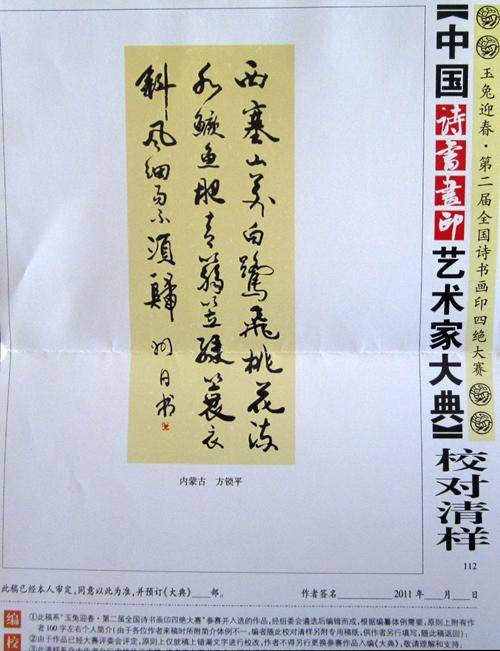 玉兔迎春·第二届全国诗书画印四绝大赛
【中国诗書畫印艺术家大典】校对清样
112
西塞山前白鹭飛桃花流
水鳜鱼肥青篛笠绿簑衣
斜风细雨不須歸
日书
内蒙古 方锁平
此稿已经本人审定,同意以此为准,并预订《大典》____部。 作者签名________ 2011年___月___日
编校
①此稿系“玉兔迎春·第二届全国诗书画印四绝大赛”参赛并入选的作品,经组委会遴选后编辑而成,根据编纂体例需要,原则上附有作
者100字左右个人简介(由于各位作者来稿时所附简介体例不一,编者随此校对清样另附专用稿纸,供作者另行填写,随此稿返回);
②由于作品已经大赛评委会评定,原则上仅就稿上错漏文字进行校改,作者不得另行更换参赛作品入编《大典》,敬请理解和支持;